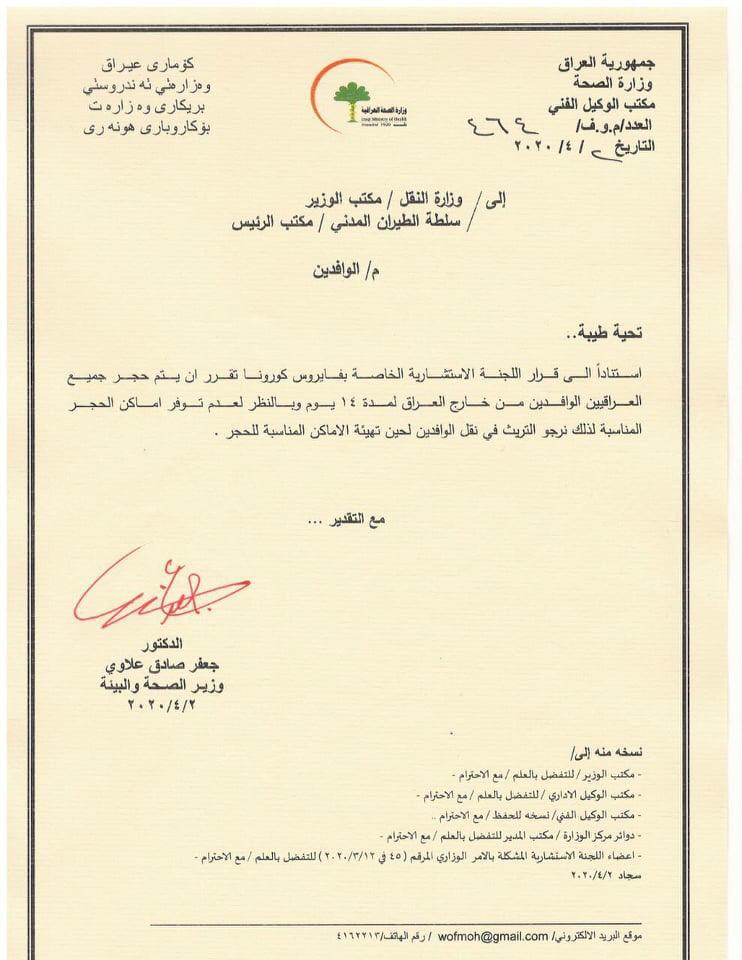 جمهورية العراق
وزارة الصحة
مكتب الوكيل الفني
العدد/م.و.ف/ ٤٦٤
التاريخ ٢/ ٤/ ٢٠٢٠
كۆماری عیراق
وەزارەتي تە ندروستي
بریکاری وە زارە ت
بۆکاروباری هونە ری
وزارة الصحة العراقية
Iraqi Ministry of Health
Founded 1920
إلى/ وزارة النقل / مكتب الوزير
سلطة الطيران المدني / مكتب الرئيس
م/ الوافدين
تحية طيبة..
استناداً الى قرار اللجنة الاستشارية الخاصة بفايروس كورونا تقرر ان يتم حجر جميع
العراقيين الوافدين من خارج العراق لمدة ١٤ يوم وبالنظر لعدم توفر اماكن الحجر
المناسبة لذلك نرجو التريث في نقل الوافدين لحين تهيئة الاماكن المناسبة للحجر .
مع التقدير ...
الدكتور
جعفر صادق علاوي
وزير الصحة والبيئة
٢٠٢٠/٤/٢
نسخه منه إلى/
- مكتب الوزير/ للتفضل بالعلم / مع الاحترام -
- مكتب الوكيل الاداري / للتفضل بالعلم / مع الاحترام -
- مكتب الوكيل الفني/ نسخه للحفظ / مع الاحترام ..
- دوائر مركز الوزارة / مكتب المدير للتفضل بالعلم / مع الاحترام -
- اعضاء اللجنة الاستشارية المشكلة بالامر الوزاري المرقم ( ٤٥ في ٢٠٢٠/٣/١٢ ) للتفضل بالعلم / مع الاحترام -
سجاد ٢٠٢٠/٤/٢
موقع البريد الالكتروني/ wofmoh@gmail.com / رقم الهاتف/٤١٦٢٢١٣